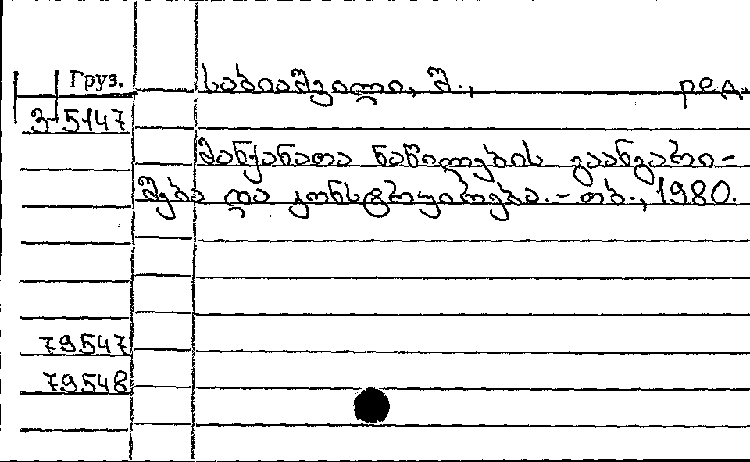 Груз.
საბიაშვილი, შ., ред.
3-5147
მანქანათა ნაწილების გაანგარი-
შება და კონსტრუირება. - თბ., 1980.
79547
79548